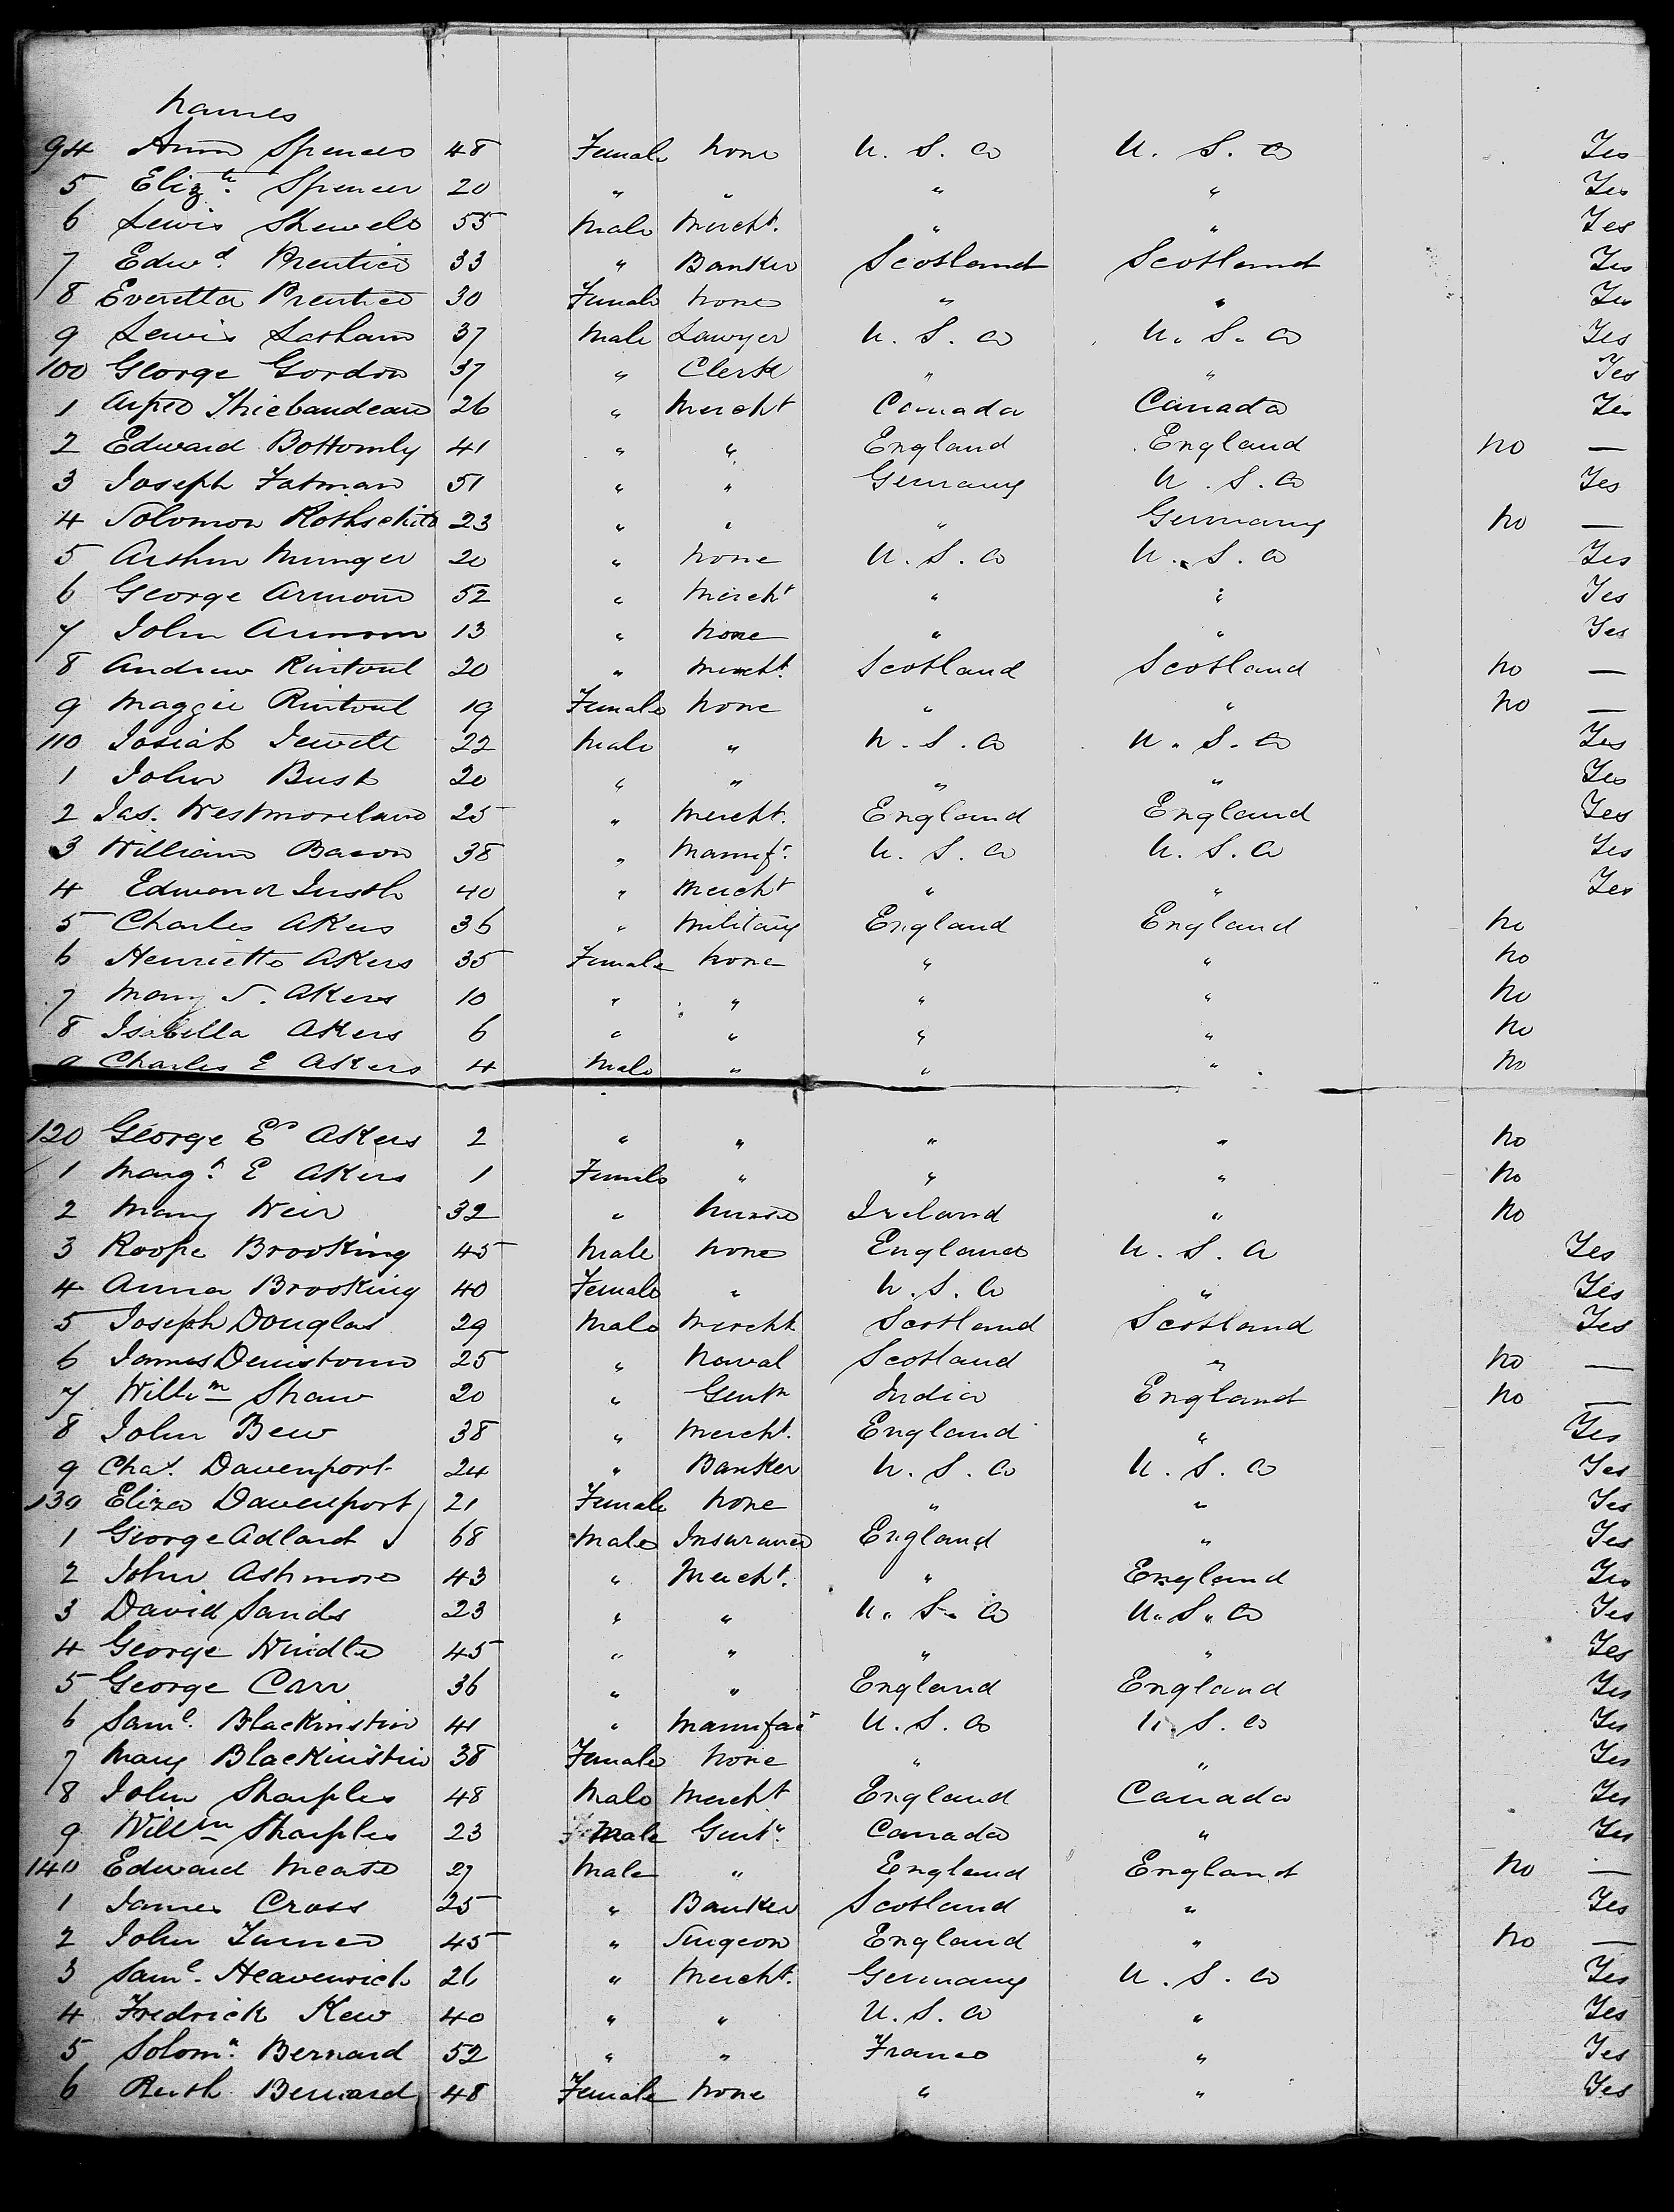 Names
94 Ann Spencer 48 Female None U. S. A
5 Eliz.th Spencer 20 " " " " Yes
6 Lewis Skewell 55 Male Mercht. " " Yes
7 Edwd. Prentice 33 " Banker Scotland Scotland Yes
8 Everetta Prentice 30 Female None " " Yes
9 Lewis 37 Male Lawyer U. S. A U. S. A Yes
100 George Gordon 37 " Clerk " " Yes
1 Alfred Thiebaudeau 26 " Mercht Canada Canada Yes
2 Edward Bottomly 41 " " England England No —
3 Joseph Fatman 51 " " Germany U. S. A Yes
4 Solomon Rothschild 23 " " " Germany No —
5 Arthur Munger 20 " None U. S. A U. S. A Yes
6 George Armour 52 " Mercht " " Yes
7 John Armour 13 " None " " Yes
8 Andrew Rintoul 20 " Mercht. Scotland Scotland No —
9 Maggie Rintoul 19 Female None " " No —
110 Josiah Jewett 22 Male " U. S. A U. S. A Yes
1 John Bush 20 " " " " Yes
2 Jas. Westmoreland 25 " Mercht. England England Yes
3 William Bacon 38 " Manufr. U. S. A U. S. A Yes
4 Edward 40 " Mercht " " Yes
5 Charles Akers 36 " Military England England No
6 Henrietta Akers 35 Female None " " No
7 Mary S. Akers 10 " " " " No
8 Isabella Akers 6 " " " " No
9 Charles E Akers 4 Male " " " No
120 George E Akers 2 " " " " No
1 Margt. E Akers 1 Female " " " No
2 Mary Weir 32 " Nurse Ireland " No
3 Roope Brooking 45 Male None England U. S. A Yes
4 Anna Brooking 40 Female " U. S. A " Yes
5 Joseph Douglas 29 Male Mercht Scotland Scotland Yes
6 James Denistoun 25 " Naval Scotland " No —
7 Willm Shaw 20 " Gentn India England No —
8 John Bew 38 " Mercht. England " Yes
9 Chas. Davenport 24 " Banker U. S. A U. S. A Yes
130 Eliza Davenport 21 Female None " " Yes
1 George Adlard 68 Male Insurance England " Yes
2 John Ashmore 43 " Mercht. " England Yes
3 David Sands 23 " " U. S. A U. S. A Yes
4 George Windle 45 " " " " Yes
5 George Carr 36 " " England England Yes
6 Saml. Blackinstin 41 " Manufac U. S. A U. S. A Yes
7 Mary Blackinstin 38 Female None " " Yes
8 John Sharples 48 Male Mercht England Canada Yes
9 Willm Sharples 23 Male Gentn. Canada " Yes
140 Edward Mease 27 Male " England England No —
1 James Cross 25 " Banker Scotland " Yes
2 John Turner 45 " Surgeon England " No —
3 Saml. Heavenrich 26 " Mercht. Germany U. S. A Yes
4 Fredrick Kew 40 " " U. S. A " Yes
5 Solomn. Bernard 52 " " France " Yes
6 Ruth Bernard 48 Female None " " Yes